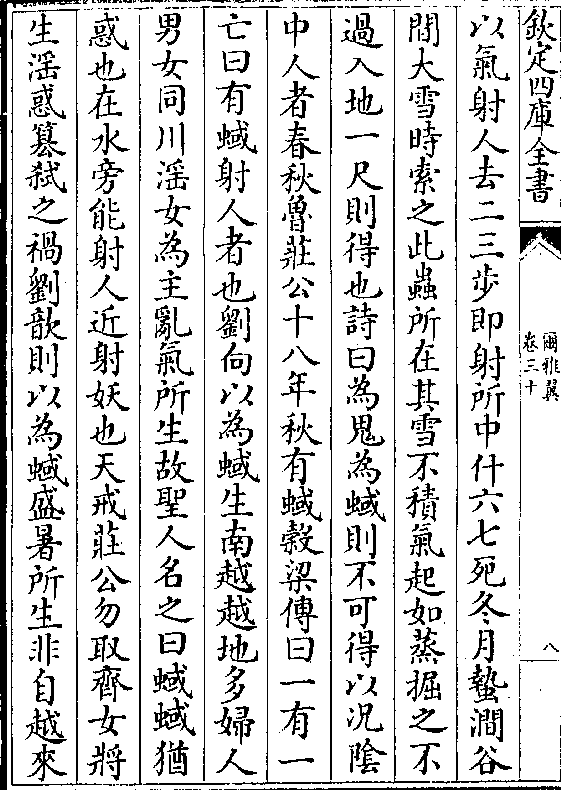 欽定四庫全書
爾雅翼
卷三十
八
以氣射人去二三步即射所中什六七死冬月蟄澗谷
閒大雪時索之此蟲所在其雪不積氣起如蒸掘之不
過入地一尺則得也詩曰為鬼為蜮則不可得以況陰
中人者春秋魯莊公十八年秋有蜮糓梁傳曰一有一
亡曰有蜮射人者也劉向以為蜮生南越越地多婦人
男女同川滛女為主亂氣所生故聖人名之曰蜮蜮猶
惑也在水旁能射人近射妖也天戒莊公勿取齊女將
生滛惑簒弑之禍劉歆則以為蜮盛暑所生非自越來